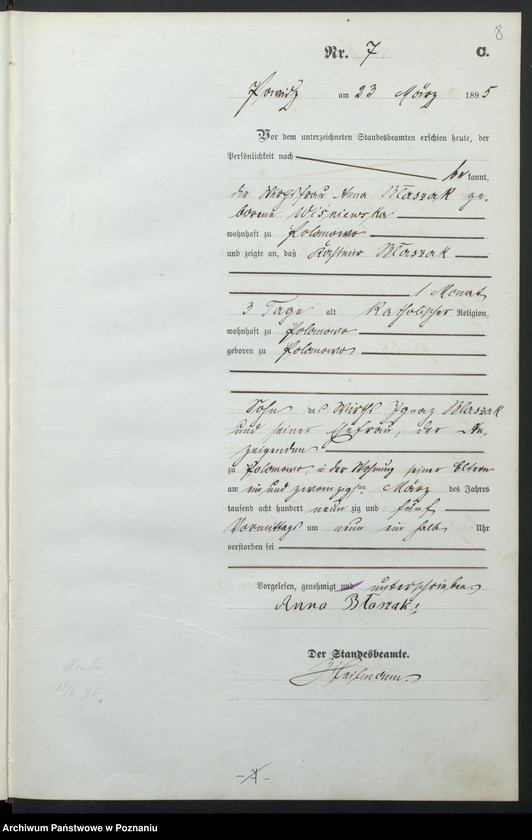 8
Nr. 7 C.
Powidz am 23 März 1895
Vor dem unterzeichneten Standesbeamten erschien heute, der
Persönlichkeit nach
bekannt,
die Wirthsfrau Anna Błaszak ge-
borene Wiśniewska
wohnhaft zu Polanowo
und zeigte an, daß Kasimir Błaszak
1 Monat
3 Tage alt katholischer Religion,
wohnhaft zu Polanowo
geboren zu Polanowo
Sohn des Wirths Ignaz Błaszak
und seiner Ehefrau, der An-
zeigenden
zu Polanowo, in der Wohnung seiner Eltern
am ein und zwanzigsten März des Jahres
tausend acht hundert neunzig und fünf
Vormittags um neun ein halb Uhr
verstorben sei
Vorgelesen, genehmigt und unterschrieben
Anna Błaszak
Der Standesbeamte.
-7-
Archiwum Państwowe w Poznaniu